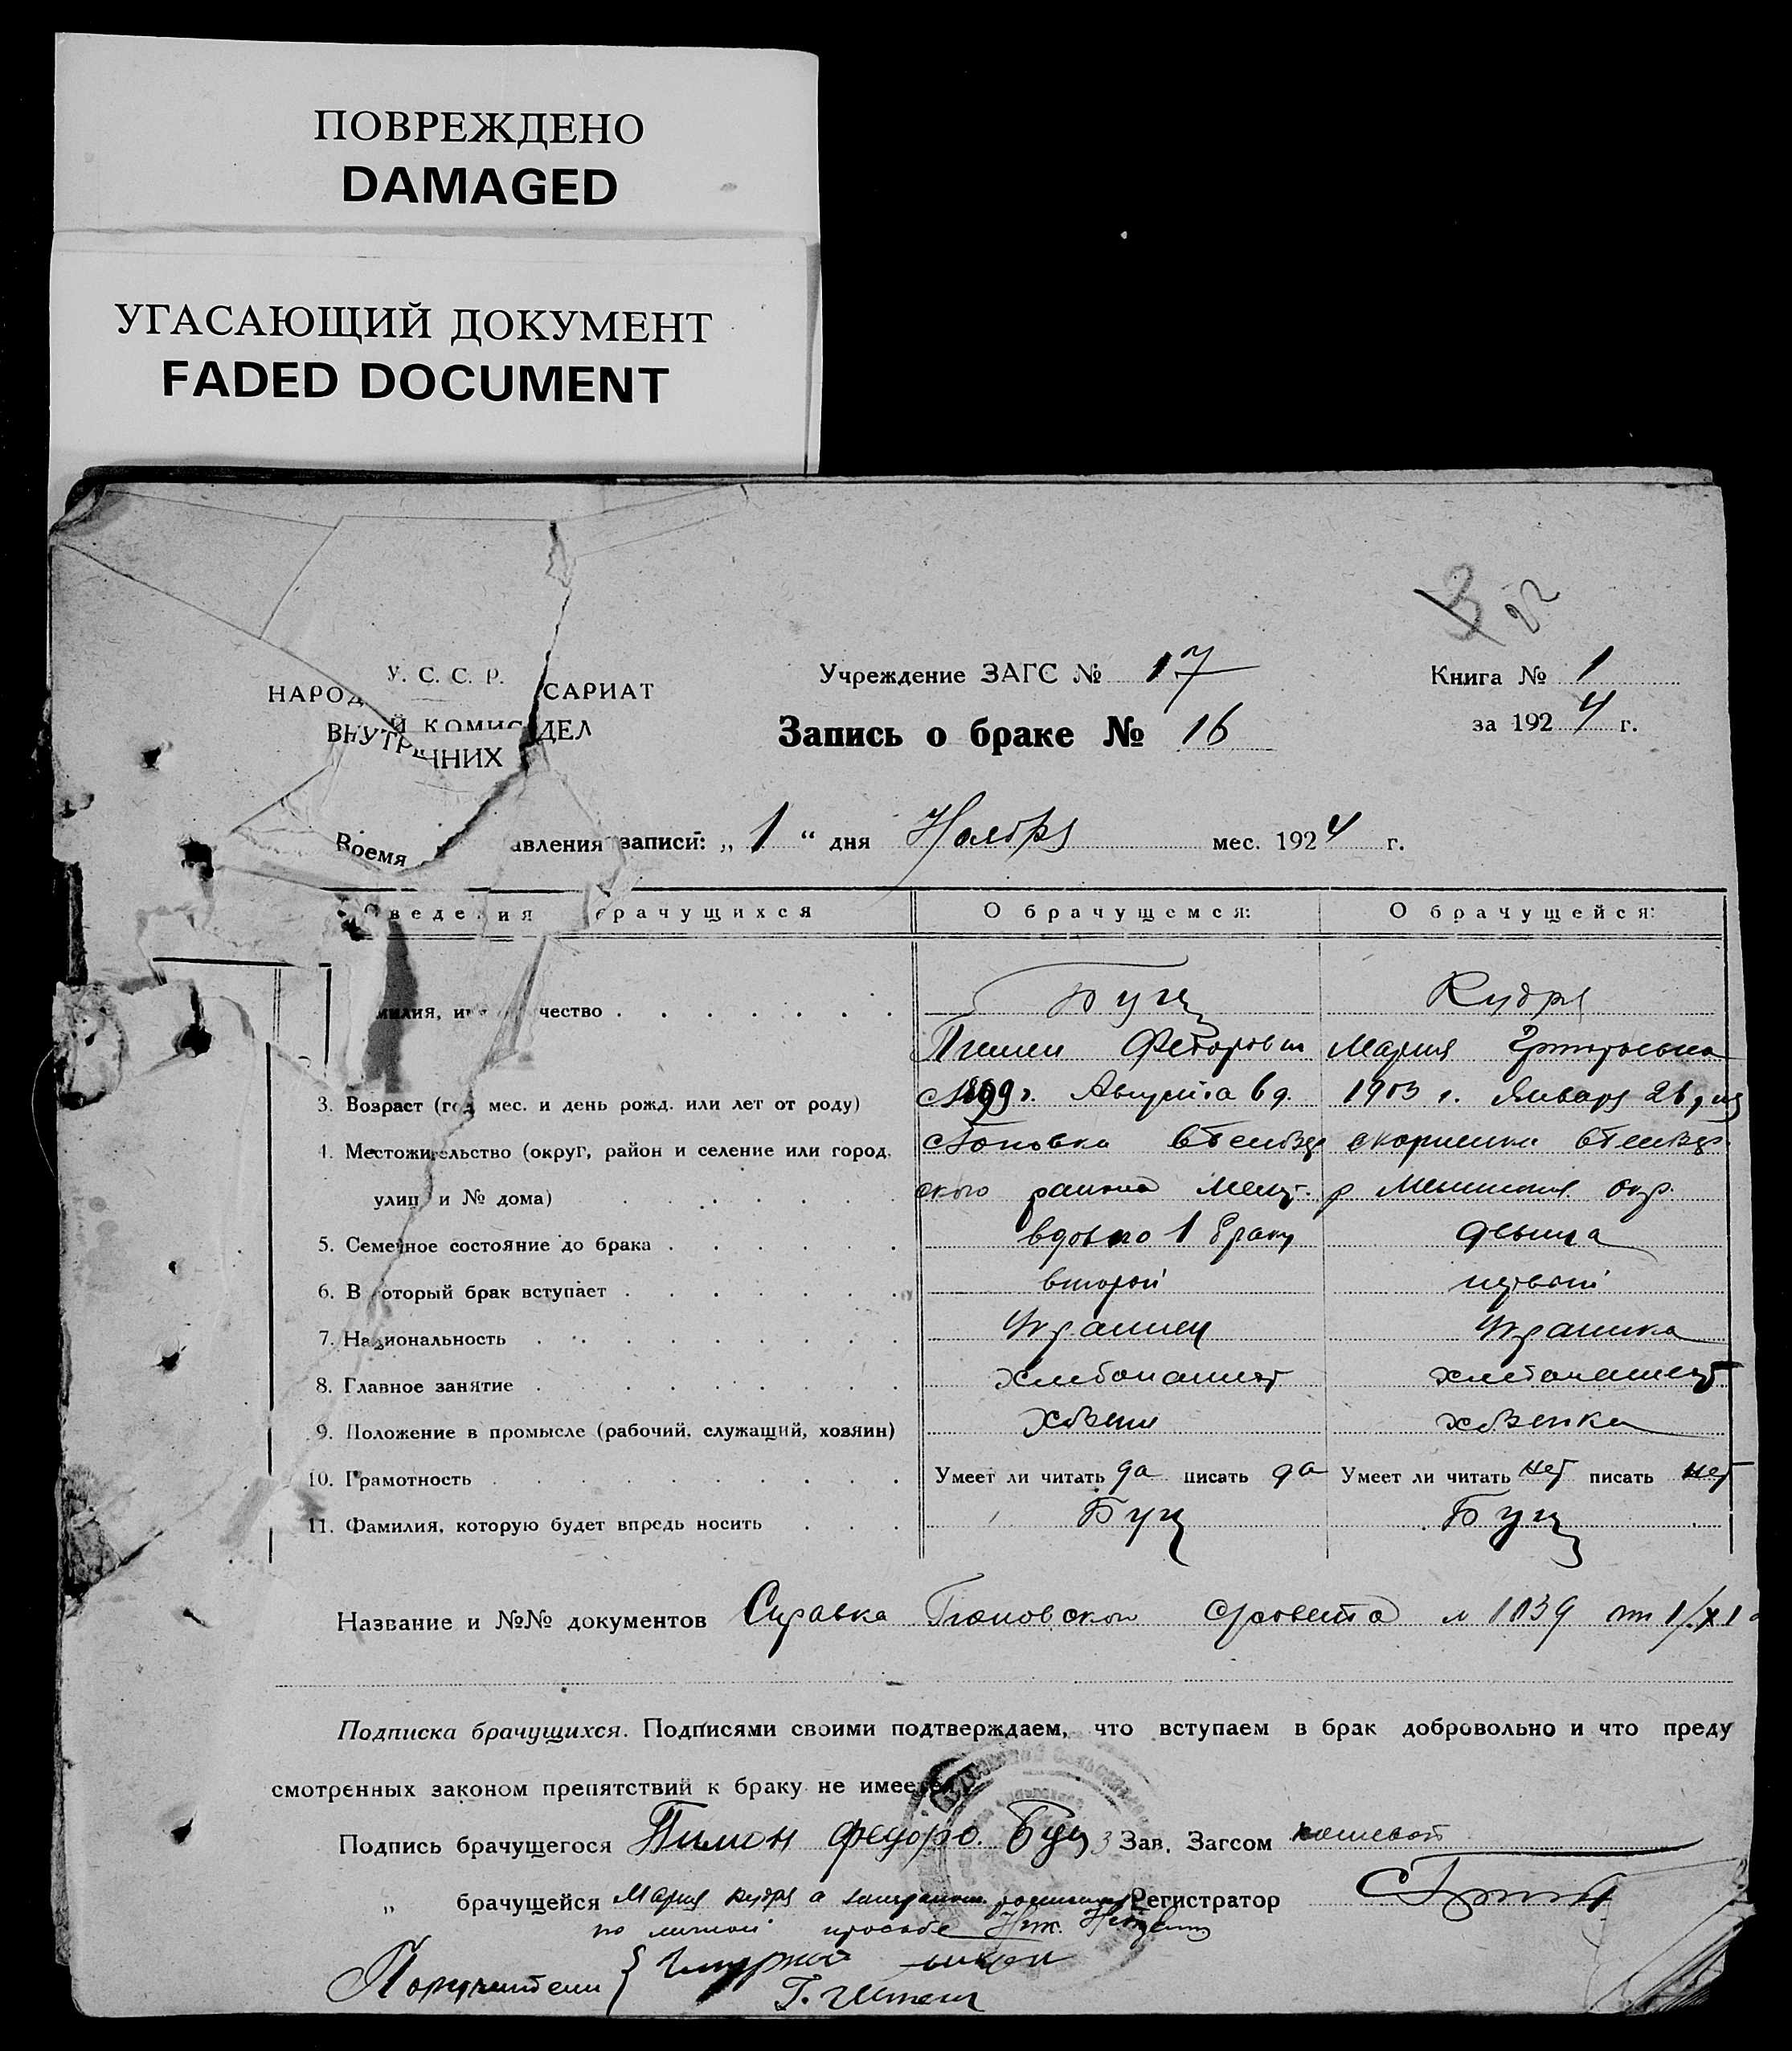 ПОВРЕЖДЕНО
DAMAGED
УГАСАЮЩИЙ ДОКУМЕНТ
FADED DOCUMENT
3
У. С. С. Р.
НАРОД САРИАТ
Й КОМИС
ВНУТРЕННИХ ДЕЛ
Учреждение ЗАГС № 17
Книга № 1
Запись о браке № 16
за 1924 г.
Время авления записи: „ 1 “ дня Ноября мес. 1924 г.
Сведения брачущихся
О брачущемся:
О брачущейся:
милия, и чество
Буц
Кудря
Пимен Федорович
Мария Григорьевна
3. Возраст (год, мес. и день рожд. или лет от роду)
1899 г. Августа 6 д.
1903 г. Января 26 дня
4. Местожительство (округ, район и селение или город,
улиц и № дома)
ского района
5. Семейное состояние до брака
вдов по 1 браку
девица
6. В который брак вступает
второй
первый
7. Национальность
Украинец
Украинка
8. Главное занятие
хлебопашест
хлебопашест
9. Положение в промысле (рабочий, служащий, хозяин)
Хозяин
хозяйка
10. Грамотность
Умеет ли читать да писать да
Умеет ли читать нет писать нет
11. Фамилия, которую будет впредь носить
Буц
Буц
Название и №№ документов Справка сровета № 1039 от 1/XI
Подписка брачущихся. Подписями своими подтверждаем, что вступаем в брак добровольно и что преду
смотренных законом препятствий к браку не имеется.
Подпись брачущегося Пимон Федоро. Буц Зав. Загсом
„ брачущейся Мария Кудря а Регистратор
по личной просьбе
Поручители {